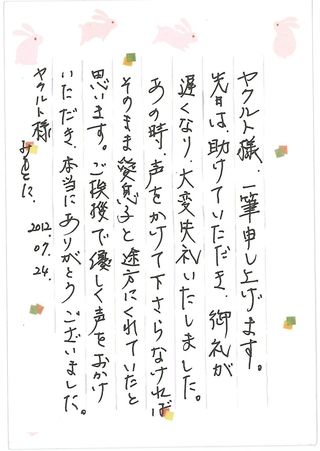 ヤクルト様、一筆申し上げます。
先日は、助けていただき、御礼が
遅くなり、大変失礼いたしました。
あの時、声をかけて下さらなければ
そのまま愛息子と途方にくれていたと
思います。ご挨拶で優しく声をおかけ
いただき、本当にありがとうございました。
ヤクルト様
2012.
07.
24.